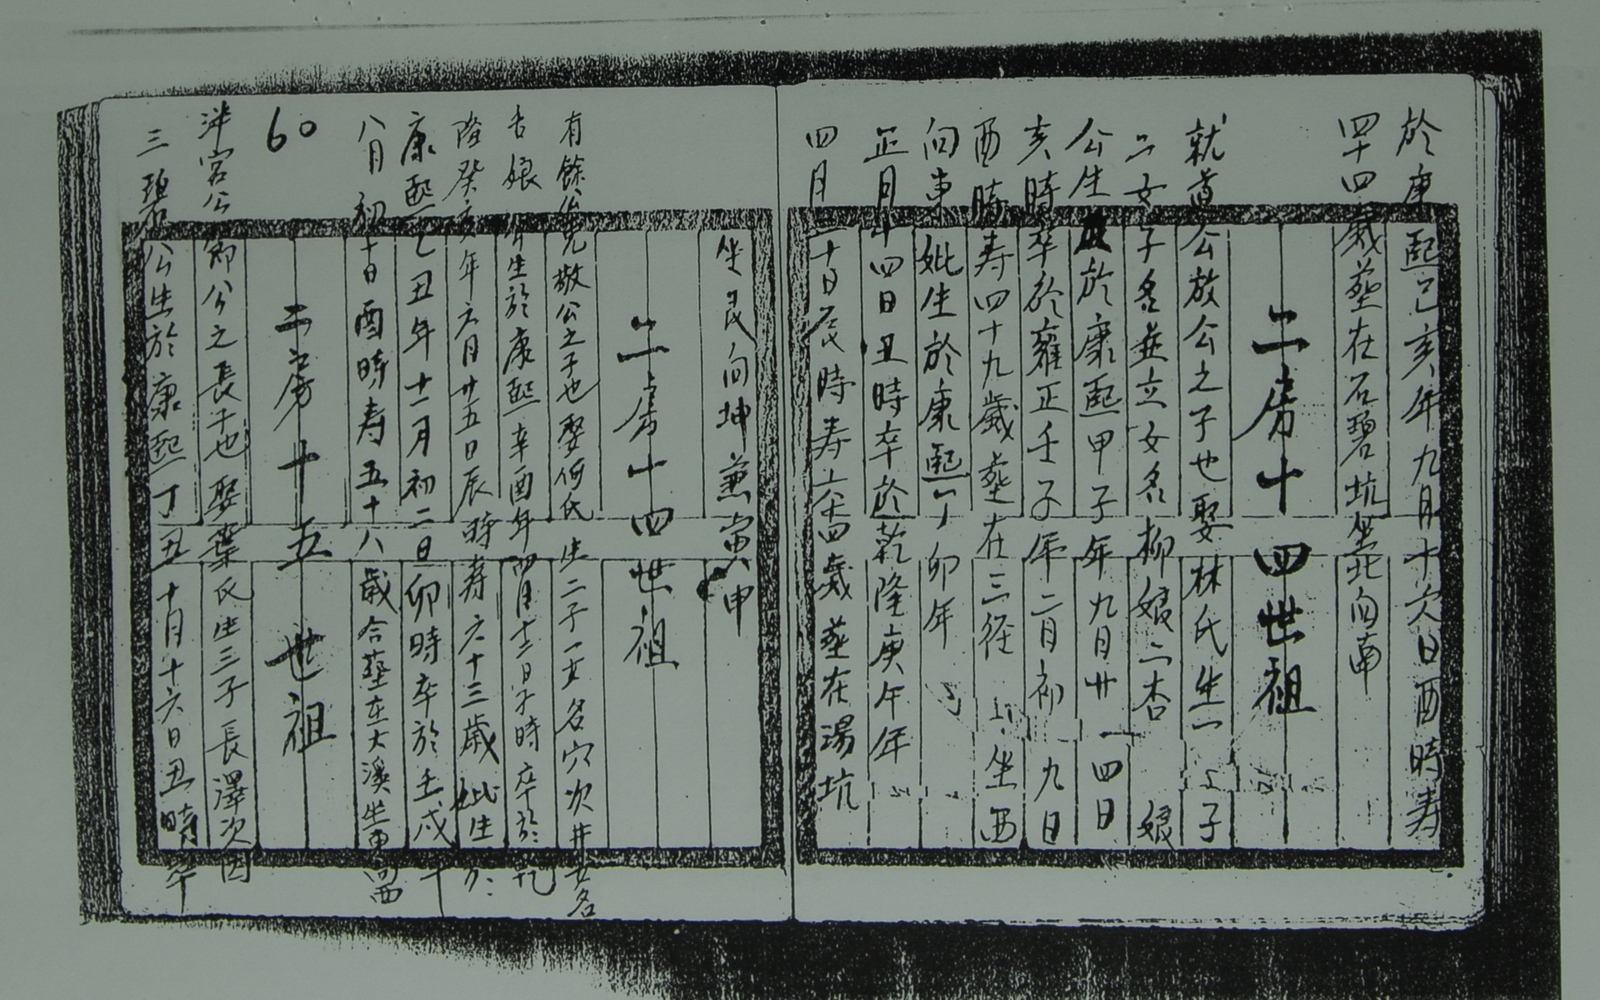 於康熙己亥年九月十六日酉時寿
四十四歲葬在石碧坑坐北向南
二房十四世祖
就道公放公之子也娶林氏生一子
二女子名並立女名柳娘二杏娘
公生於康熙甲子年九月廿四日
亥時卒於雍正壬子年二月初九日
酉時寿四十九歲葬在三径坐西
向東妣生於康熙丁卯年
正月十四日丑時卒於乾隆庚午年
四月十日辰時寿六十四歲葬在湯坑
坐艮向坤兼寅申
二房十四世祖
有餘公光敬公之子也娶何氏生二子一女名穴次井女名
杏娘公生於康熙辛酉年四月十二日子時卒於乾
隆癸亥年六月廿五日辰時寿六十三歲妣生於
康熙乙丑年十一月初二日卯時卒於壬戌年
八月初十日酉時寿五十八歲合葬在大溪坐東向西
60
二房十五世祖
泮宮公節公之長子也娶葉氏生三子長澤次因
三碧公生於康熙丁丑十月十六日丑時卒